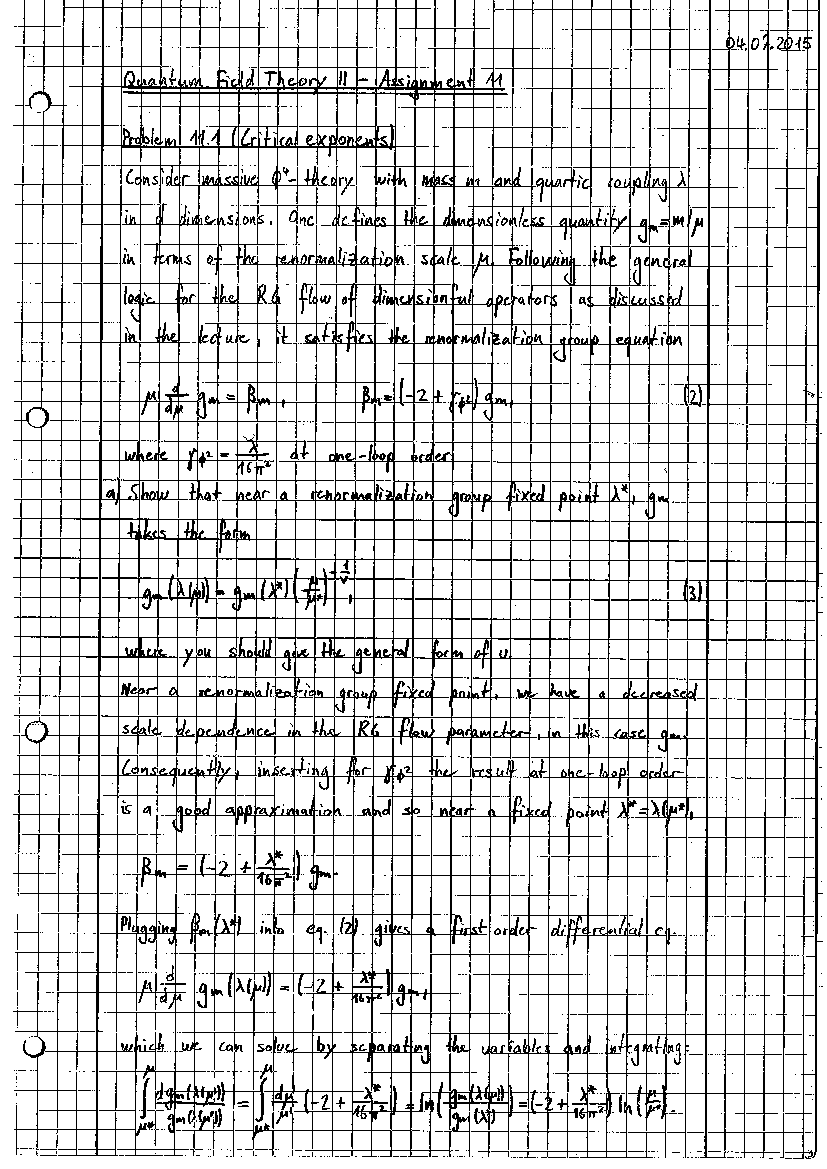 04.07.2015
Quantum Field Theory II - Assignment 11
Problem 11.1 (Critical exponents)
Consider massive ϕ⁴-theory with mass m and quartic coupling λ
in d dimensions. One defines the dimensionless quantity gₘ=m/μ
in terms of the renormalization scale μ. Following the general
logic for the RG flow of dimensionful operators as discussed
in the lecture, it satisfies the renormalization group equation
μ d/dμ gₘ = βₘ, βₘ = (-2 + γ_ϕ²) gₘ, (2)
where γ_ϕ² = λ/16π² at one-loop order
a) Show that near a renormalization group fixed point λ*, gₘ
takes the form
gₘ(λ(μ)) = gₘ(λ*) (μ/μ*)^(-1/ν), (3)
where you should give the general form of ν.
Near a renormalization group fixed point, we have a decreased
scale dependence in the RG flow parameter, in this case gₘ.
Consequently, inserting for γ_ϕ² the result at one-loop order
is a good approximation and so near a fixed point λ* = λ(μ*),
βₘ = (-2 + λ*/16π²) gₘ.
Plugging βₘ(λ*) into eq. (2) gives a first order differential eq.
μ d/dμ gₘ(λ(μ)) = (-2 + λ*/16π²) gₘ,
which we can solve by separating the variables and integrating:
∫_μ*^μ dgₘ(λ(μ'))/gₘ(λ(μ')) = ∫_μ*^μ dμ'/μ' (-2 + λ*/16π²) = ln(gₘ(λ(μ))/gₘ(λ)) = (-2 + λ*/16π²) ln(μ/μ*).